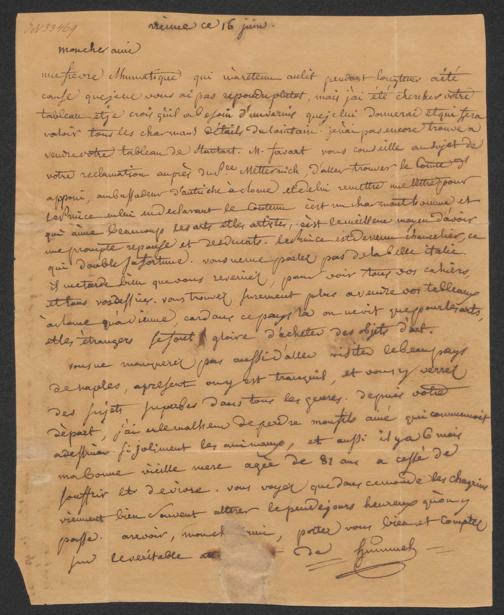 vienne ce 16 juin.
mon cher ami
une fievre Rhumatique qui m'a retenu au lit pendant longtems a été
cause que je ne vous ai pas repondu plutot, mais j'ai été chercher votre
tableau et je crois qu'il a besoin d'un vernis que je lui donnerai et qui fera
valoir tous les charmans détails du lointain. je n'ai pas encore trouvé a
vendre votre tableau de Mr. favart vous conseille au sujet de
votre reclamation auprès du Pce Metternich, d'aller trouver le Comte d'
apponi, ambassadeur d'autriche a Rome et de lui remettre une lettre pour
le Prince en lui en declarant le Contenu c'est un charmant homme et
qui aime beaucoup les arts et les artistes, c'est le meilleur moyen d'avoir
une prompte reponse et des ducats. le Prince est devenu chancelier, ce
qui double sa fortune. vous ne me parlez pas de la belle italie.
il me tarde bien que vous reveniez, pour voir tous vos cahiers,
et tous vos dessins. vous trouvez surement plus a vendre vos tableaux
a Rome qu'a vienne car dans ce pays la on ne vit que pour les arts,
et les etrangers se font gloire d'acheter des objets d'art.
vous ne manquerez pas aussi d'aller visiter le beau pays
de naples, apresent on y est tranquil, et vous y verrez
des sujets superbes dans tous les genres. depuis votre
départ, j'ai eu le malheur de perdre mon fils ainé qui commencoit
a dessiner si joliment les animaux, et aussi il y a 6 mois
ma bonne vieille mere agée de 81 ans a cessé de
souffrir et de vivre. vous voyez que dans ce monde les chagrins
viennent bien souvent alterer le peu de jours heureux qu'on y
passe. a revoir, mon cher ami, portez vous bien et comptez
sur le veritable de